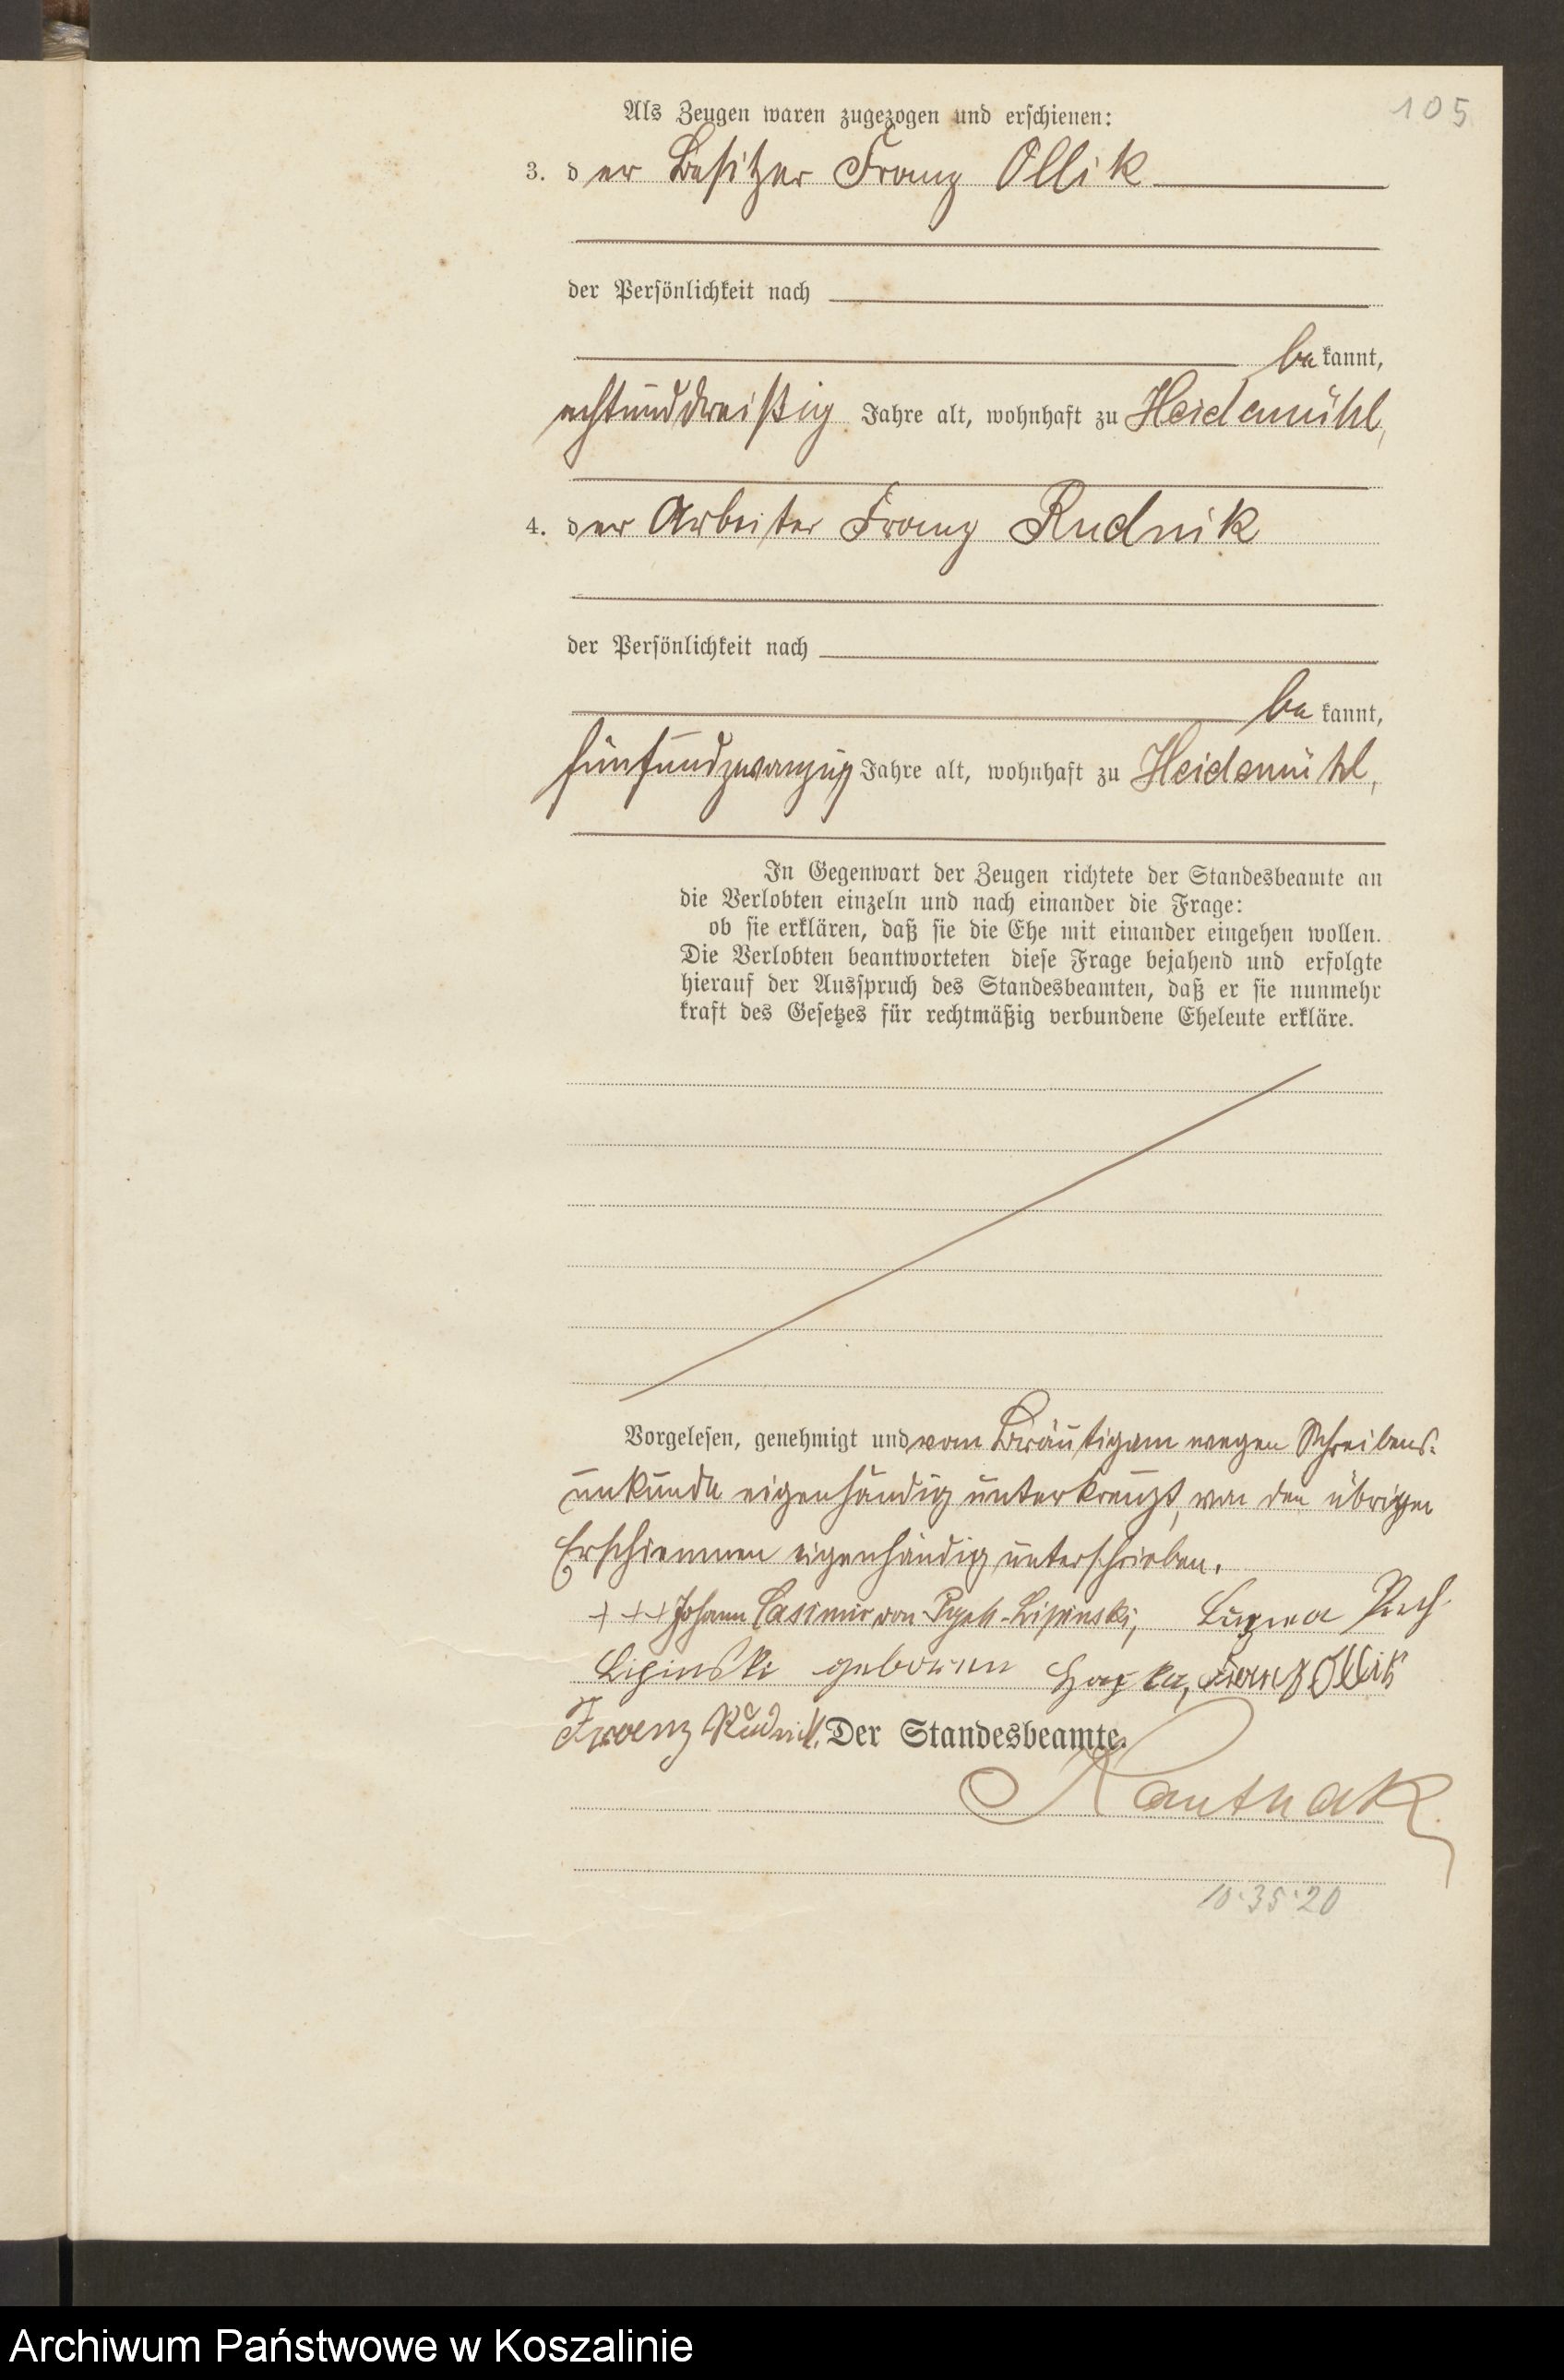 105
Als Zeugen waren zugezogen und erschienen:
3. der Besitzer Franz Ollik
der Persönlichkeit nach
bekannt,
achtunddreißig Jahre alt, wohnhaft zu Heidemühl,
4. der Arbeiter Franz Rudnik
der Persönlichkeit nach
bekannt,
fünfundzwanzig Jahre alt, wohnhaft zu Heidemühl,
In Gegenwart der Zeugen richtete der Standesbeamte an
die Verlobten einzeln und nach einander die Frage:
ob sie erklären, daß sie die Ehe mit einander eingehen wollen.
Die Verlobten beantworteten diese Frage bejahend und erfolgte
hierauf der Ausspruch des Standesbeamten, daß er sie nunmehr
kraft des Gesetzes für rechtmäßig verbundene Eheleute erkläre.
Vorgelesen, genehmigt und vom Bräutigam wegen Schreibens-
unkunde eigenhändig unterkreuzt, von den übrigen
Erschienenen eigenhändig unterschrieben.
+++ Johann Casimir von Lipinski,
Lipinski geborene Franz Ollik
Franz Rudnik. Der Standesbeamte.
10.35.20
Archiwum Państwowe w Koszalinie